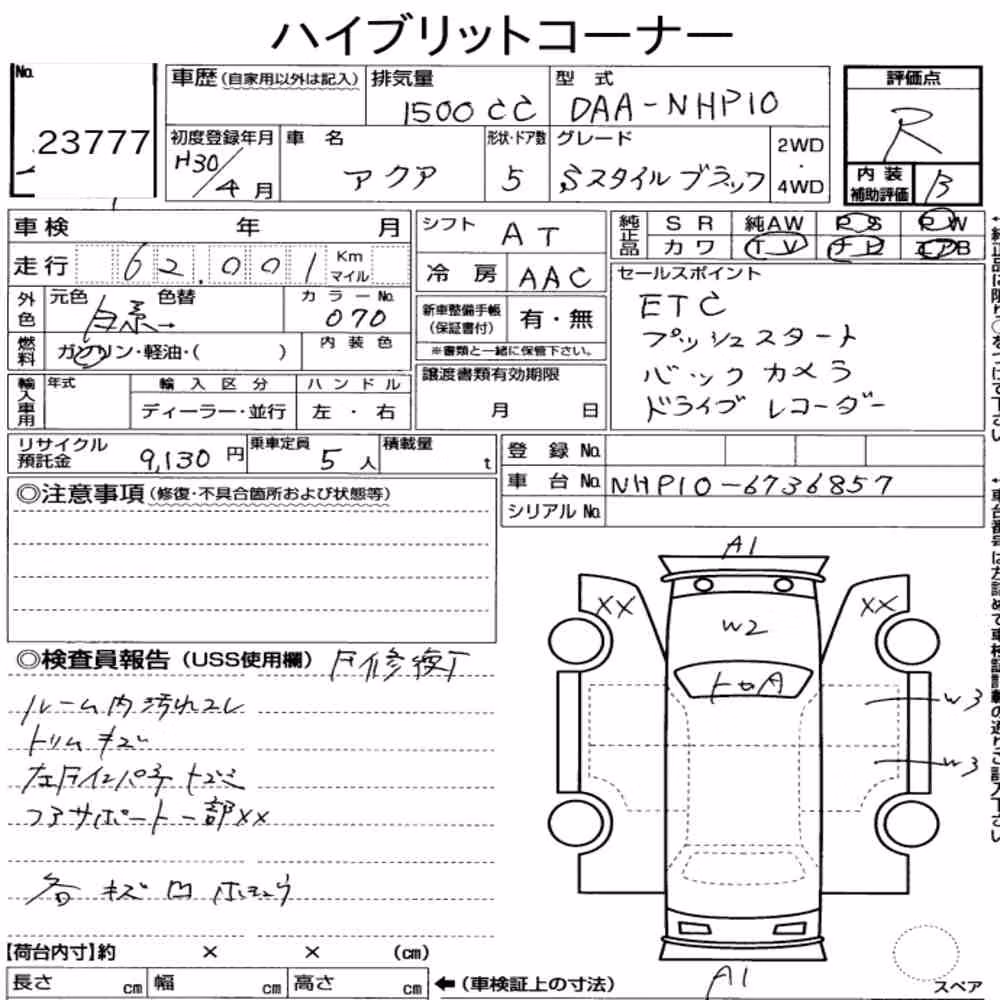 ハイブリットコーナー
No. 23777
車歴(自家用以外は記入) 排気量 1500CC 型式 DAA-NHP10
評価点 R
初度登録年月 H30/4月 車名 アクア 形状・ドア数 5 グレード Sスタイルブラック 2WD・4WD
内装補助評価 B
車検 年 月
走行 62,001 Km マイル
シフト AT
冷房 AAC
純正品 SR 純AW PS PW
カワ TV ナビ エアB
外色 元色 色替 カラーNo. 070
燃料 ガソリン・軽油・( ) 内装色
新車整備手帳(保証書付) 有・無
※書類と一緒に保管下さい。
セールスポイント
ETC
プッシュスタート
バックカメラ
ドライブレコーダー
輸入車用 年式 輸入区分 ハンドル
ディーラー・並行 左・右
譲渡書類有効期限
月 日
リサイクル預託金 9,130円 乗車定員 5人 積載量 t
登録No.
車台No. NHP10-6736857
シリアルNo.
◎注意事項(修復・不具合箇所および状態等)
◎検査員報告(USS使用欄)
ルーム内汚れコレ
トリムキズ
コアサポート一部XX
各キズ凹
A1
XX XX
W2
W3
W3
A1
スペア
【荷台内寸】約 × × (cm)
長さ cm 幅 cm 高さ cm ←(車検証上の寸法)